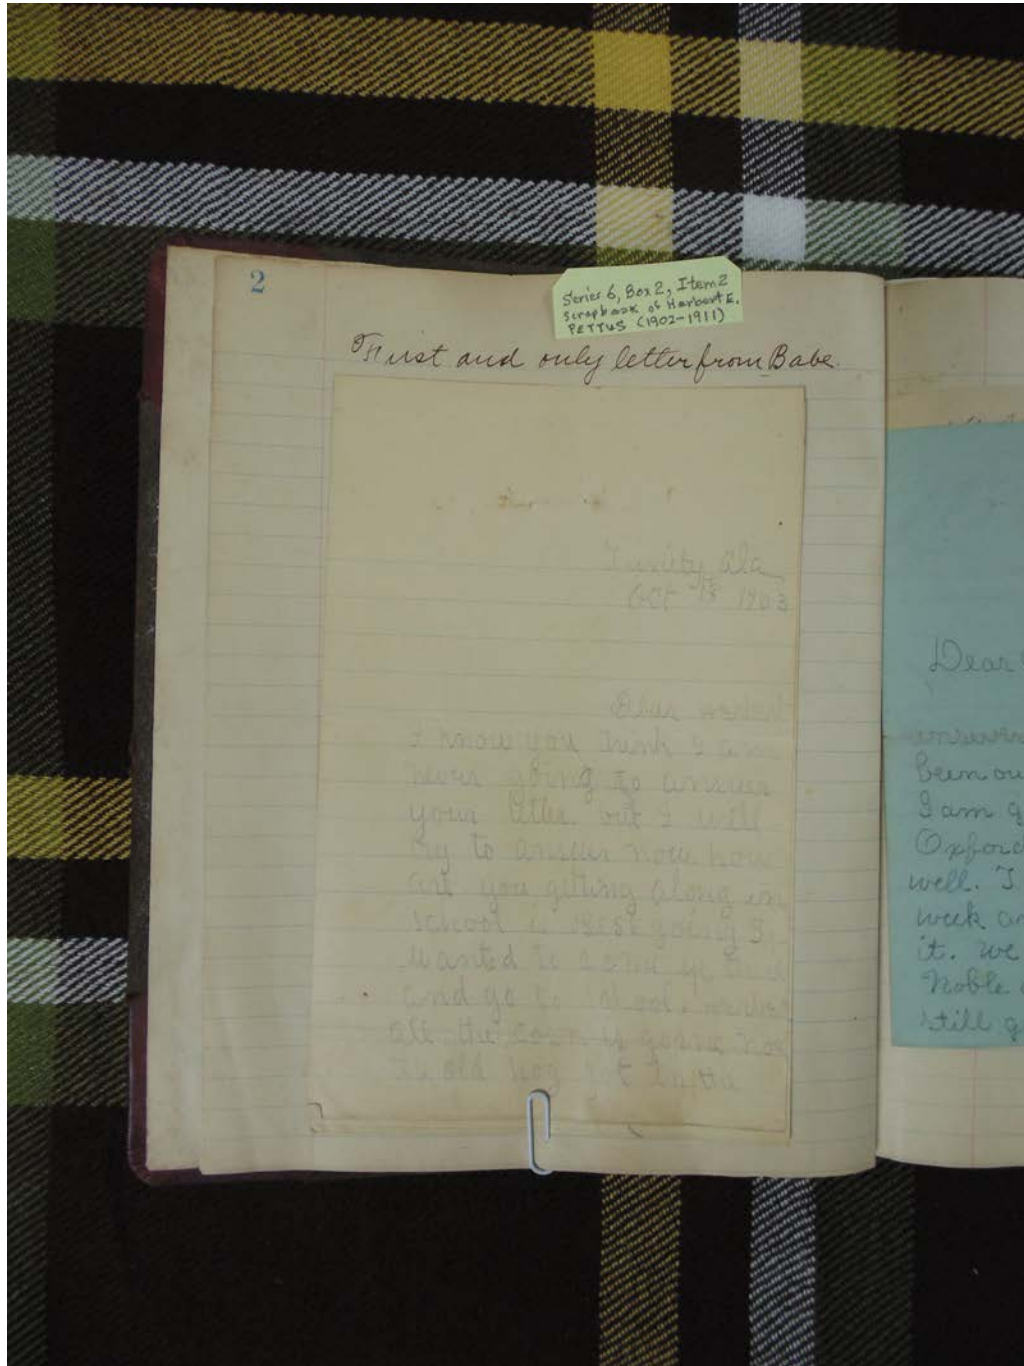 2
Series 6, Box 2, Item 2
Scrapbook of Herbert E.
PETTUS (1902-1911)
First and only letter from Babe
Trinity Ala
Oct 1903
Dear Herbert
I know you think I am
never going to answer
your letter. but I will
try to answer now how
are you getting along in
school is going I
wanted to come up there
and go to school.
all the corn is gone now
old hog got
Dear
been ou
I am g
Oxford
well. I
week an
it. we
Noble
still g